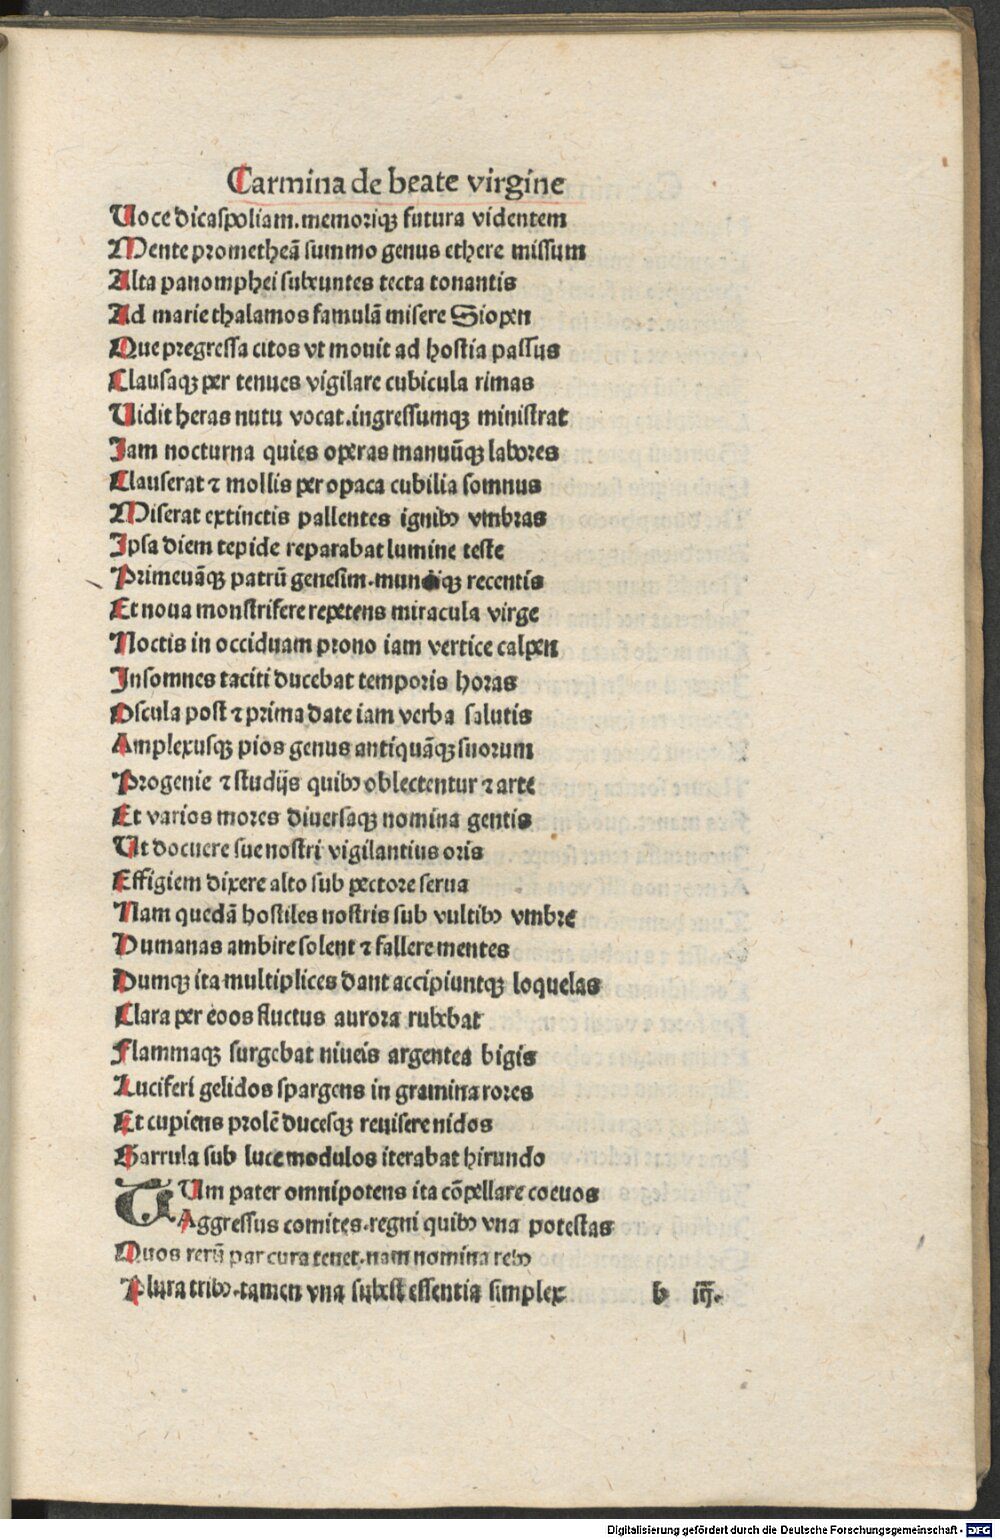 Carmina de beate virgine
Uoce dicaspoliam. memoriqꝫ futura videntem
Mente prometheā summo genus ethere missum
Alta panomphei subeuntes tecta tonantis
Ad marie thalamos famulā misere Siopen
Que pregressa citos vt mouit ad hostia passus
Clausaqꝫ per tenues vigilare cubicula rimas
Uidit heras nutu vocat. ingressumqꝫ ministrat
Jam nocturna quies operas manuūqꝫ labores
Clauserat ⁊ mollis per opaca cubilia somnus
Miserat extinctis pallentes ignibꝰ vmbras
Ipsa diem tepide reparabat lumine teste
Primeuāqꝫ patrū genesim. mundiqꝫ recentis
Et noua monstrifere repetens miracula virge
Noctis in occiduam prono iam vertice calpen
Insomnes taciti ducebat temporis horas
Oscula post ⁊ prima date iam verba salutis
Amplexusqꝫ pios genus antiquāqꝫ suorum
Progenie ⁊ studijs quibꝰ oblectentur ⁊ arte
Et varios mores diuersaqꝫ nomina gentis
Ut docuere sue nostri vigilantius oris
Effigiem dixere alto sub pectore serua
Nam quedā hostiles nostris sub vultibꝰ vmbre
Humanas ambire solent ⁊ fallere mentes
Dumqꝫ ita multiplices dant accipiuntqꝫ loquelas
Clara per eoos fluctus aurora rubebat
Flammaqꝫ surgebat niueis argentea bigis
Luciferi gelidos spargens in gramina rores
Et cupiens prolē ducesqꝫ reuisere nidos
Garrula sub luce modulos iterabat hirundo
TUm pater omnipotens ita cōpellare coeuos
Aggressus comites. regni quibꝰ vna potestas
Quos rerū par cura tenet. nam nomina rebꝰ
Plura tribꝰ. tamen vna subest essentia simplex b iij.
Digitalisierung gefördert durch die Deutsche Forschungsgemeinschaft - DFG